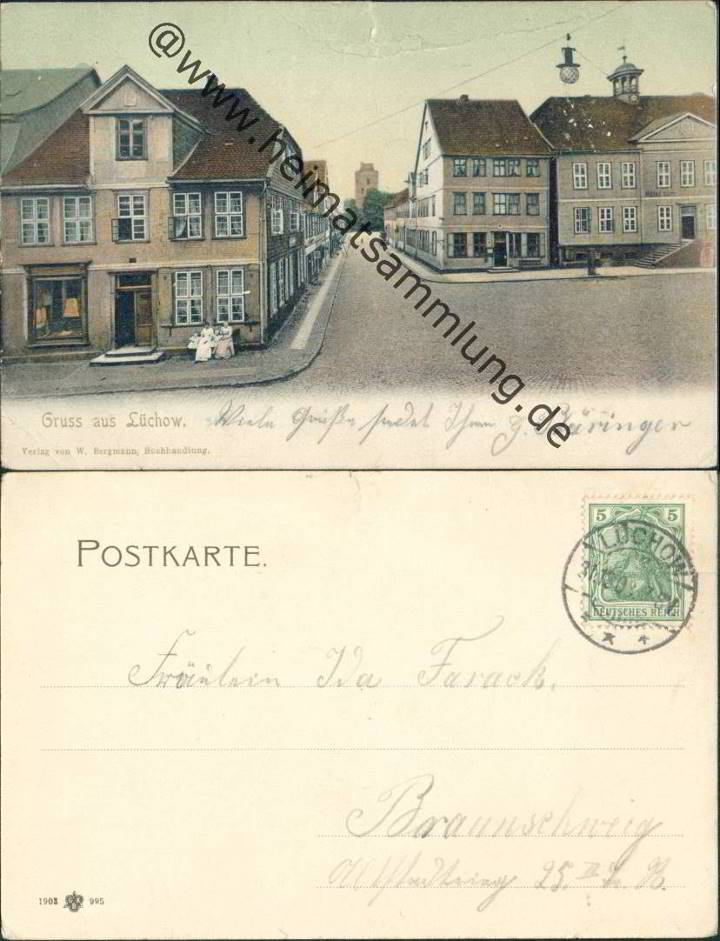 @www.heimatsammlung.de
Gruss aus Lüchow. Viele Grüße sendet Ihnen
Verlag von W. Bergmann, Buchhandlung.
POSTKARTE.
5 5
LÜCHOW
DEUTSCHES REICH
Fräulein Ida Farack.
Braunschweig
Altstadtring 25.
1903 995